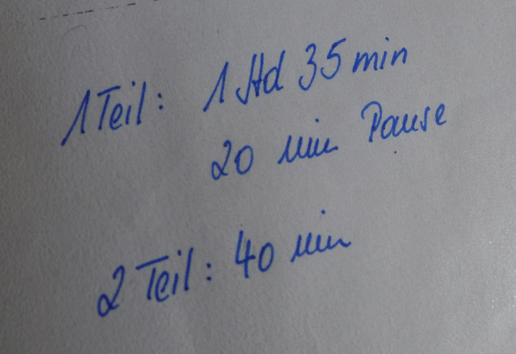 1 Teil: 1 Std 35 min
20 min Pause
2 Teil: 40 min